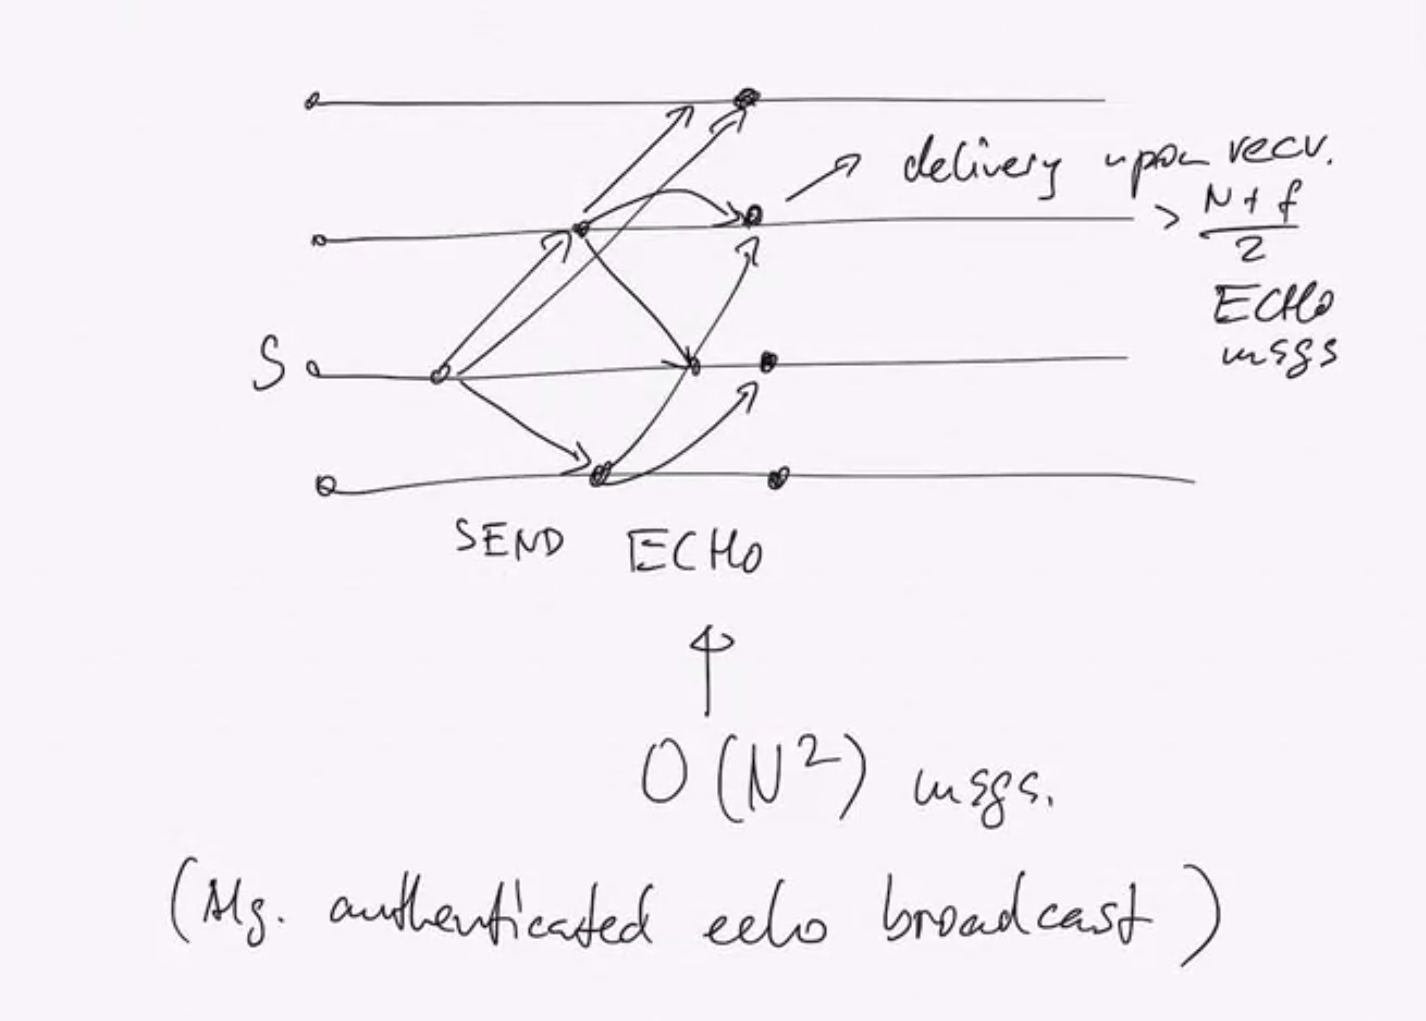 delivery upon recv.
> N + f
2
ECHO
msgs
S
SEND ECHO
O(N²) msgs.
(Alg. authenticated echo broadcast)